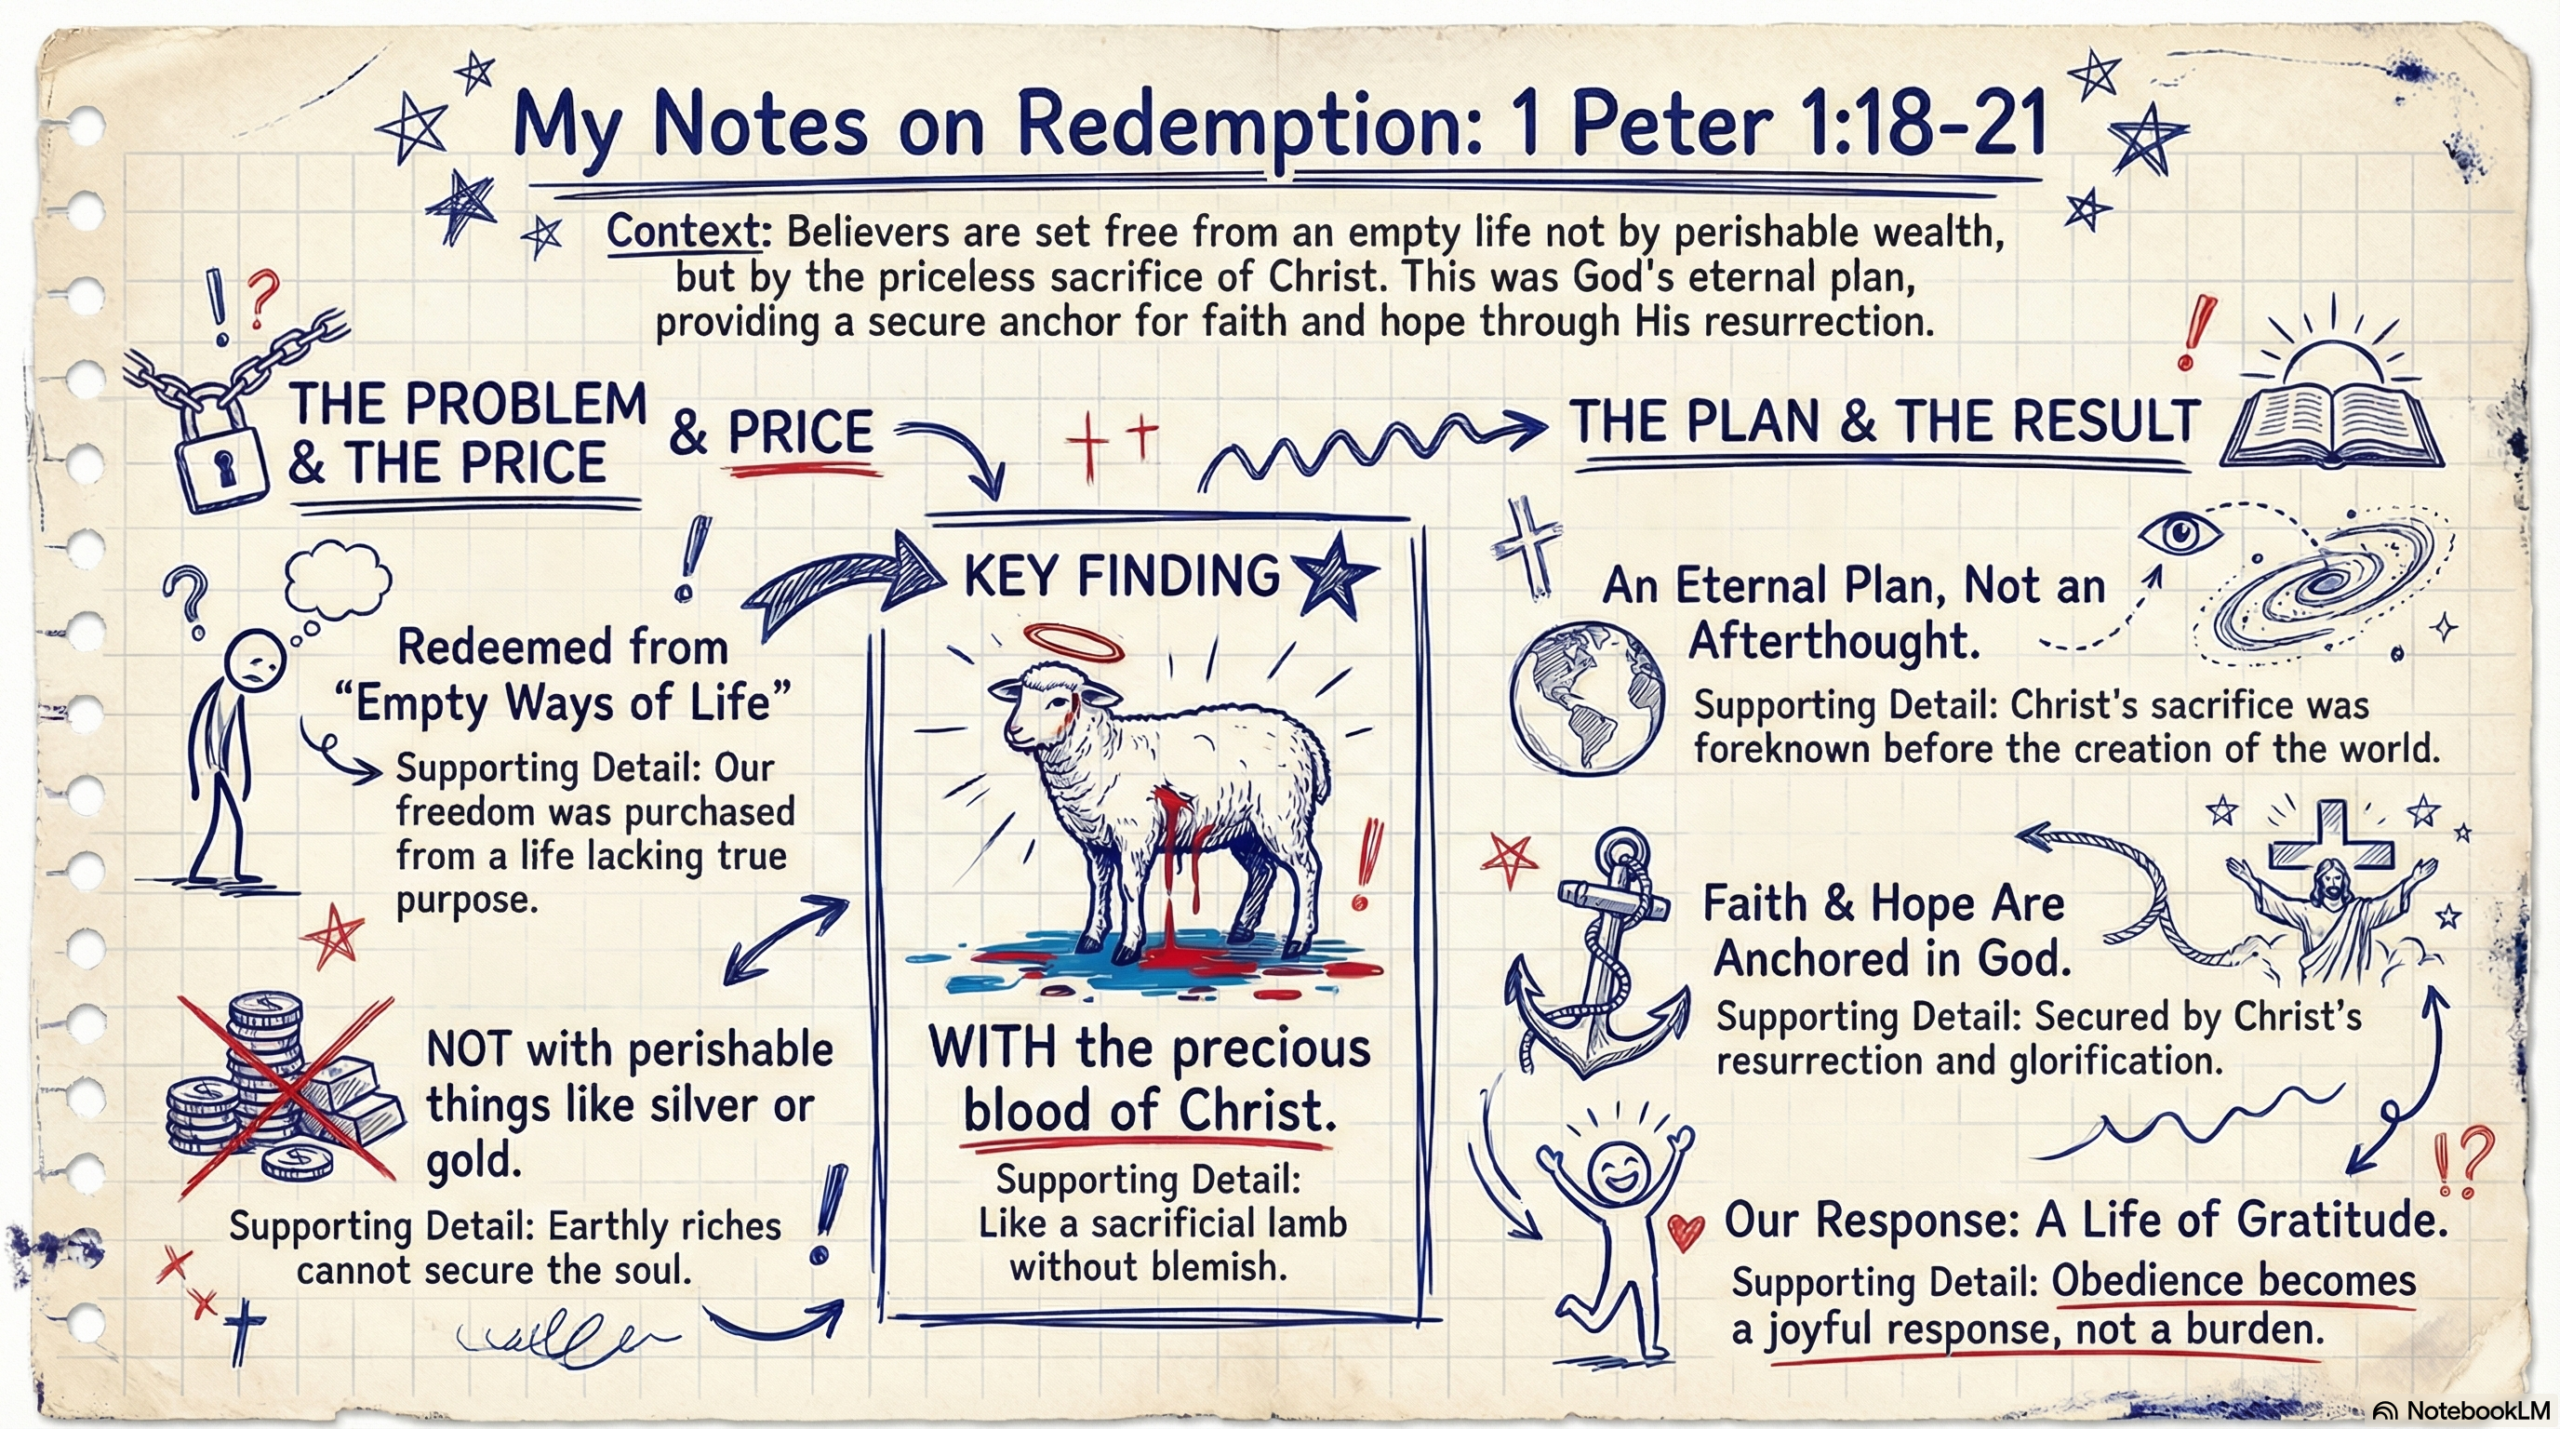 My Notes on Redemption: 1 Peter 1:18-21
Context: Believers are set free from an empty life not by perishable wealth,
but by the priceless sacrifice of Christ. This was God's eternal plan,
providing a secure anchor for faith and hope through His resurrection.
THE PROBLEM
& THE PRICE
& PRICE
Redeemed from
“Empty Ways of Life”
Supporting Detail: Our
freedom was purchased
from a life lacking true
purpose.
NOT with perishable
things like silver or
gold.
Supporting Detail: Earthly riches
cannot secure the soul.
KEY FINDING
WITH the precious
blood of Christ.
Supporting Detail:
Like a sacrificial lamb
without blemish.
THE PLAN & THE RESULT
An Eternal Plan, Not an
Afterthought.
Supporting Detail: Christ's sacrifice was
foreknown before the creation of the world.
Faith & Hope Are
Anchored in God.
Supporting Detail: Secured by Christ's
resurrection and glorification.
Our Response: A Life of Gratitude.
Supporting Detail: Obedience becomes
a joyful response, not a burden.
NotebookLM